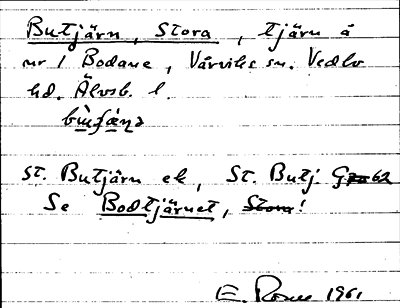 Butjärn, Stora, tjärn å
nr 1 Bodane, Vårviks sn. Vedbo
hd. Älvsb. l.
St. Butjärn ek, St. Butj. G 62
Se Bodtjärnet, Stora!
E. 1961